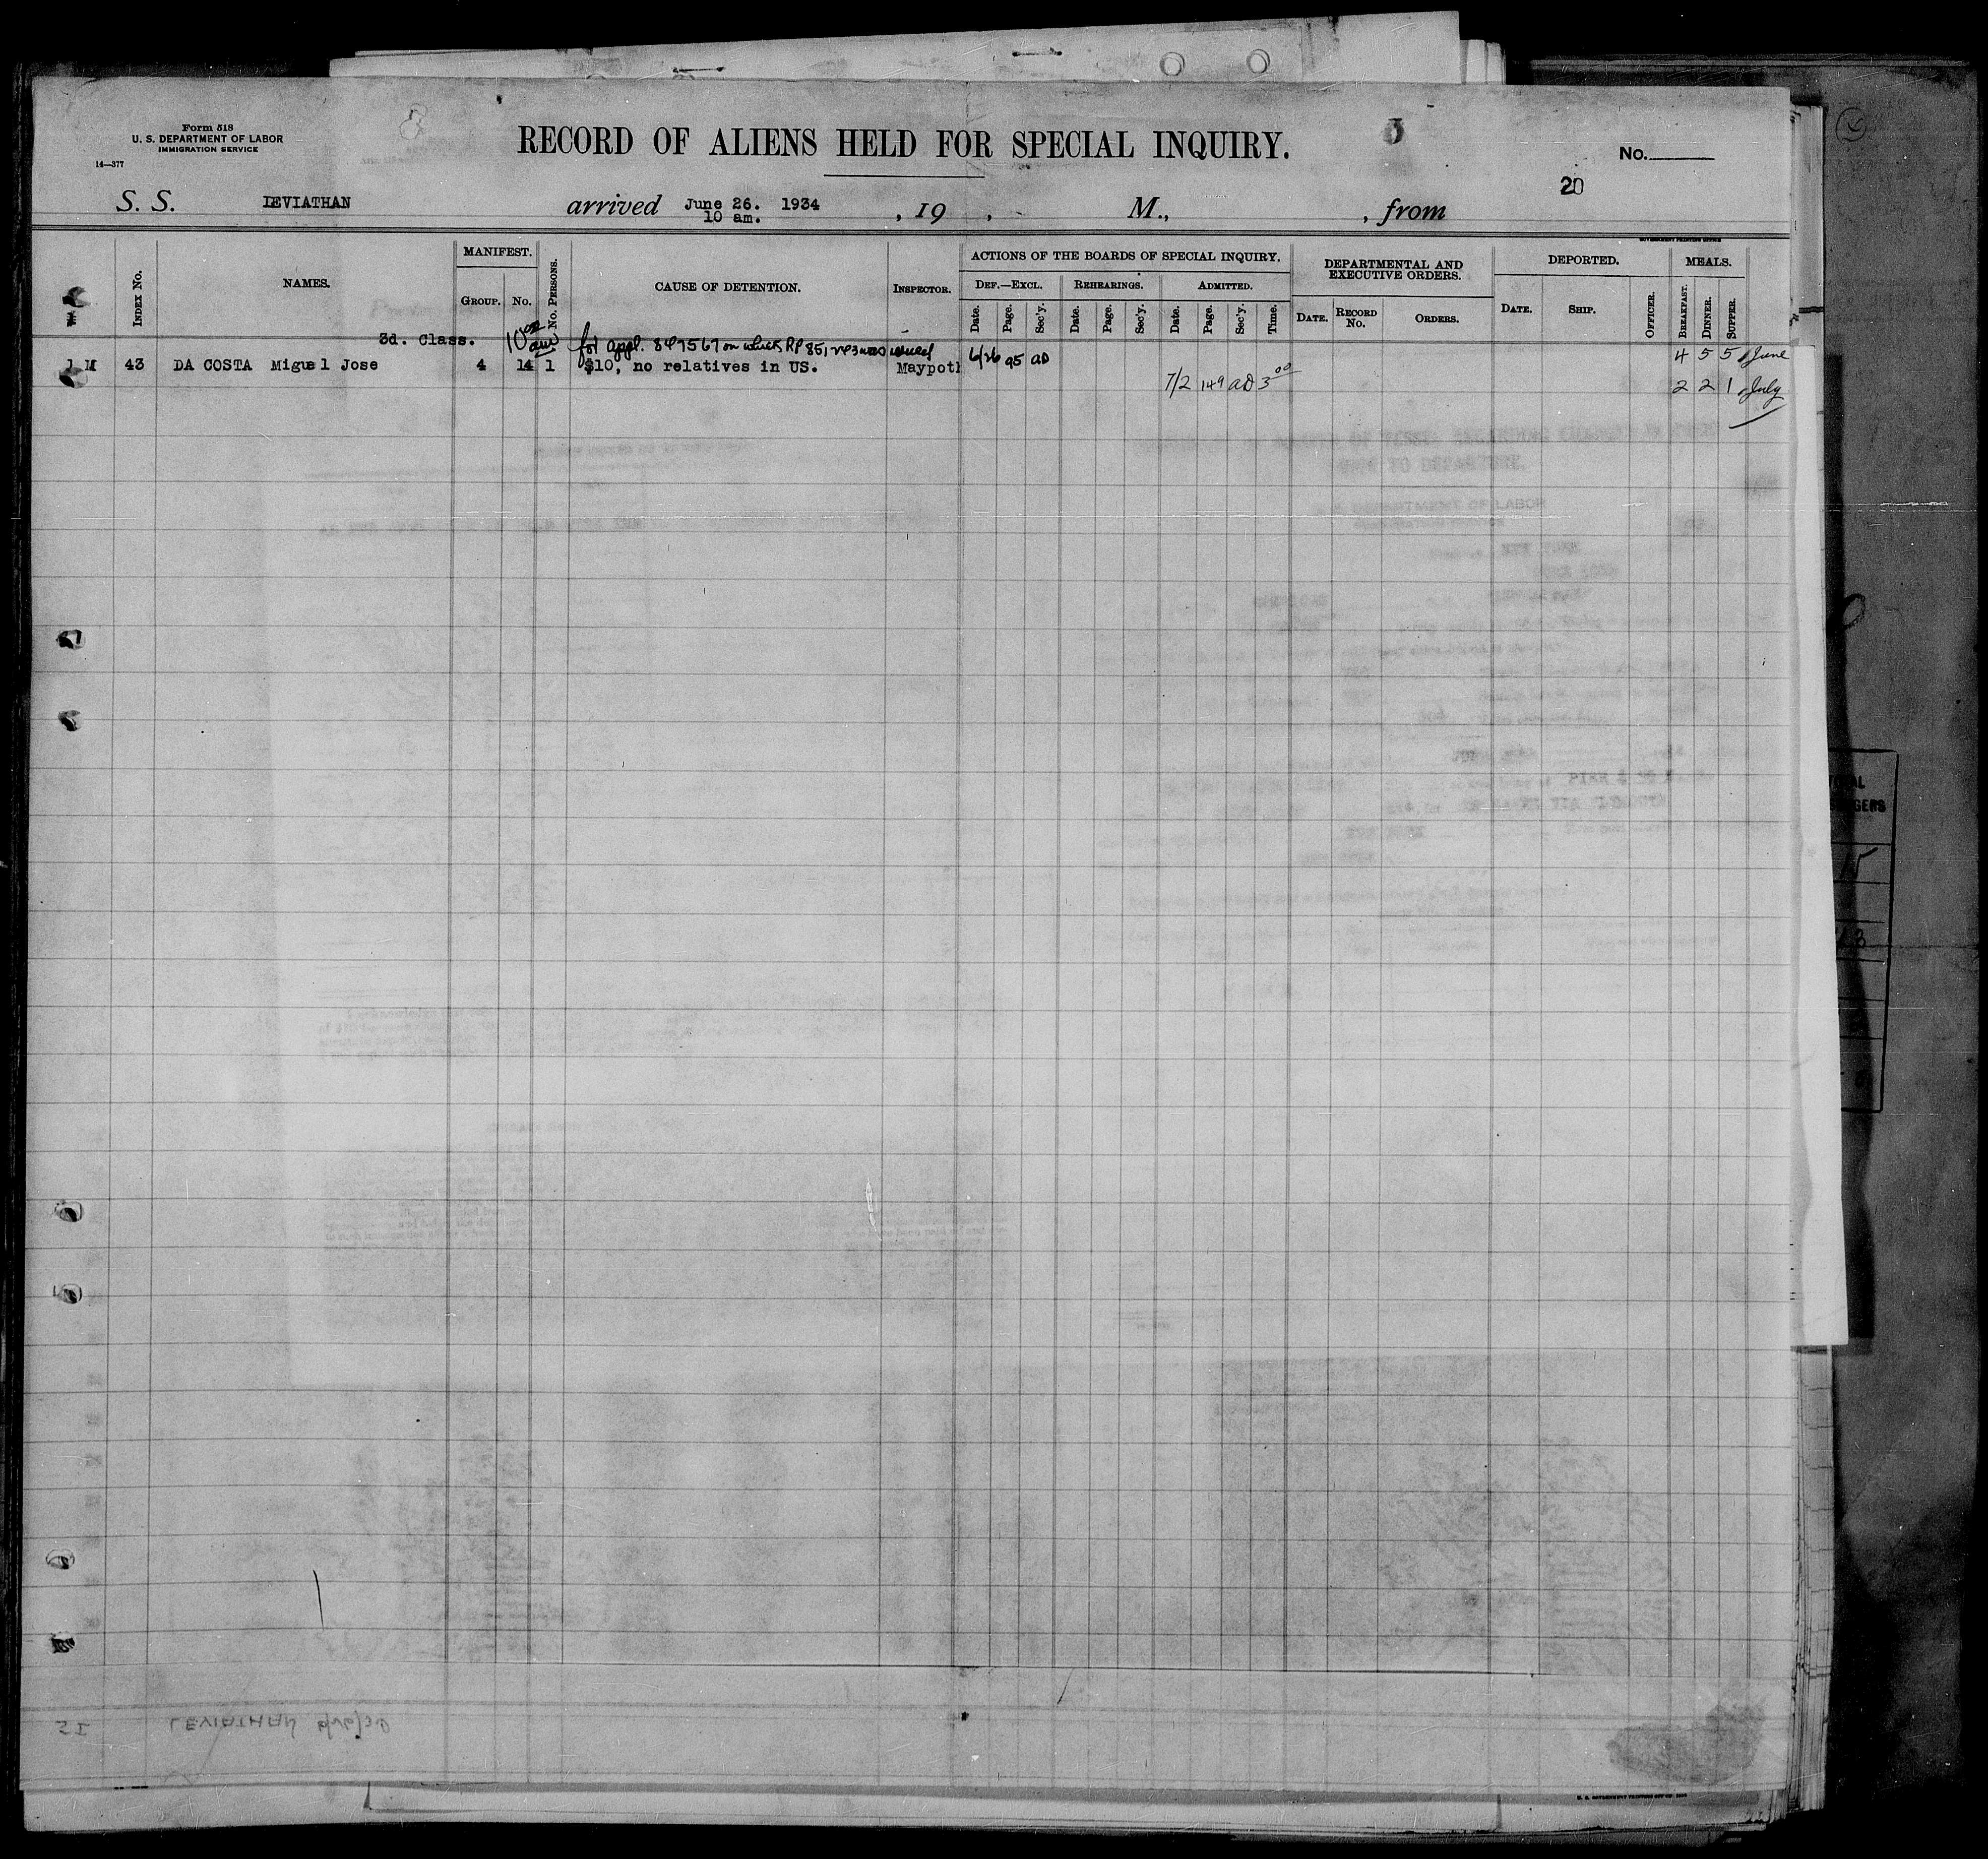 Form 518
U. S. DEPARTMENT OF LABOR
IMMIGRATION SERVICE
14—377
RECORD OF ALIENS HELD FOR SPECIAL INQUIRY.
3
No.
20
S. S. LEVIATHAN arrived June 26. 1934 10 am. , 19 , M., , from
GOVERNMENT PRINTING OFFICE
INDEX No.
NAMES.
MANIFEST.
GROUP. No.
No. PERSONS.
CAUSE OF DETENTION.
INSPECTOR.
ACTIONS OF THE BOARDS OF SPECIAL INQUIRY.
DEF.—EXCL. REHEARINGS. ADMITTED.
Date. Page. Sec'y. Date. Page. Sec'y. Date. Page. Sec'y. Time.
DEPARTMENTAL AND EXECUTIVE ORDERS.
DATE. RECORD No. ORDERS.
DEPORTED.
DATE. SHIP. OFFICER.
MEALS.
BREAKFAST. DINNER. SUPPER.
3d. Class. 10 00 am for appl. 847567 on which RP 851 was issued
1 M 43 DA COSTA Miguel Jose 4 14 1 $10, no relatives in US. Maypoth 6/26 95 AD 4 5 5 June
7/2 149 AD 3 00 2 2 1 July
SI LEVIATHAN